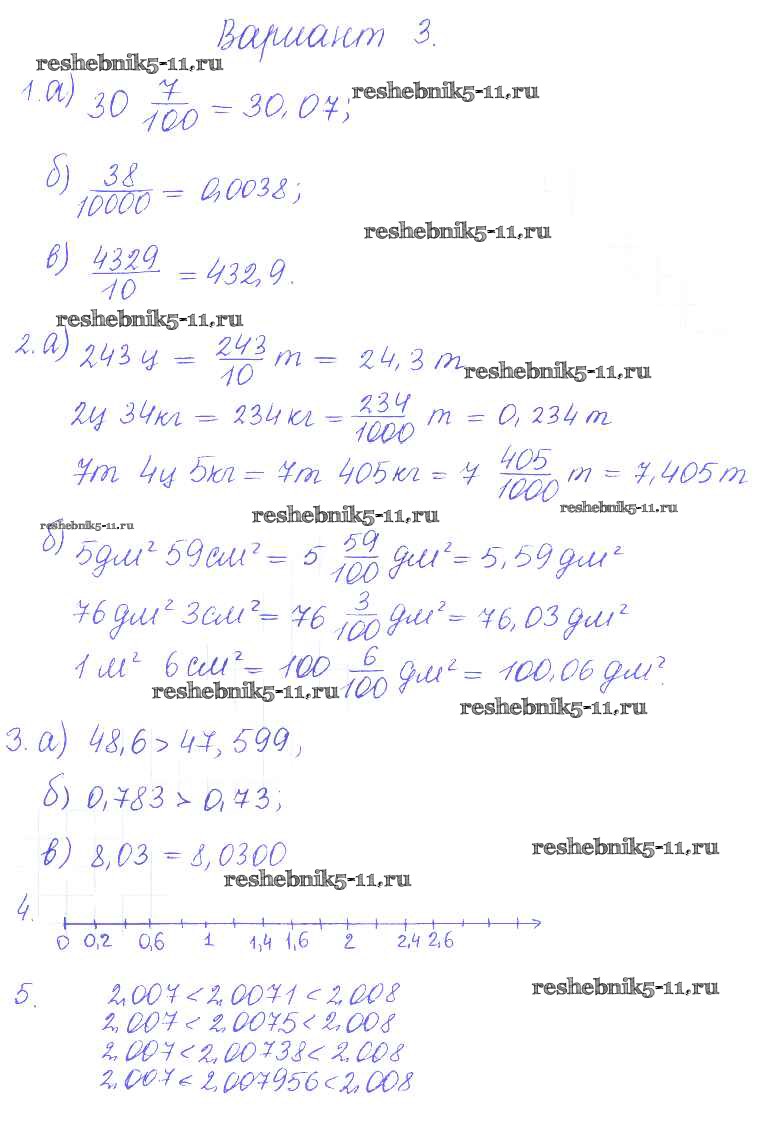 Вариант 3.
reshebnik5-11.ru
1. а) 30 7/100 = 30,07;
reshebnik5-11.ru
б) 38/10000 = 0,0038;
reshebnik5-11.ru
в) 4329/10 = 432,9.
reshebnik5-11.ru
2. а) 243 ц = 243/10 т = 24,3 т
reshebnik5-11.ru
2ц 34кг = 234кг = 234/1000 т = 0,234 т
7т 4ц 5кг = 7т 405кг = 7 405/1000 т = 7,405 т
reshebnik5-11.ru
reshebnik5-11.ru
reshebnik5-11.ru
б) 5дм² 59см² = 5 59/100 дм² = 5,59 дм²
76 дм² 3см² = 76 3/100 дм² = 76,03 дм²
1 м² 6 см² = 100 6/100 дм² = 100,06 дм².
reshebnik5-11.ru
reshebnik5-11.ru
3. а) 48,6 > 47,599;
б) 0,783 > 0,73;
в) 8,03 = 8,0300
reshebnik5-11.ru
reshebnik5-11.ru
4.
0 0,2 0,6 1 1,4 1,6 2 2,4 2,6
5. 2,007 < 2,0071 < 2,008
reshebnik5-11.ru
2,007 < 2,0075 < 2,008
2,007 < 2,00738 < 2.008
2,007 < 2,007956 < 2,008